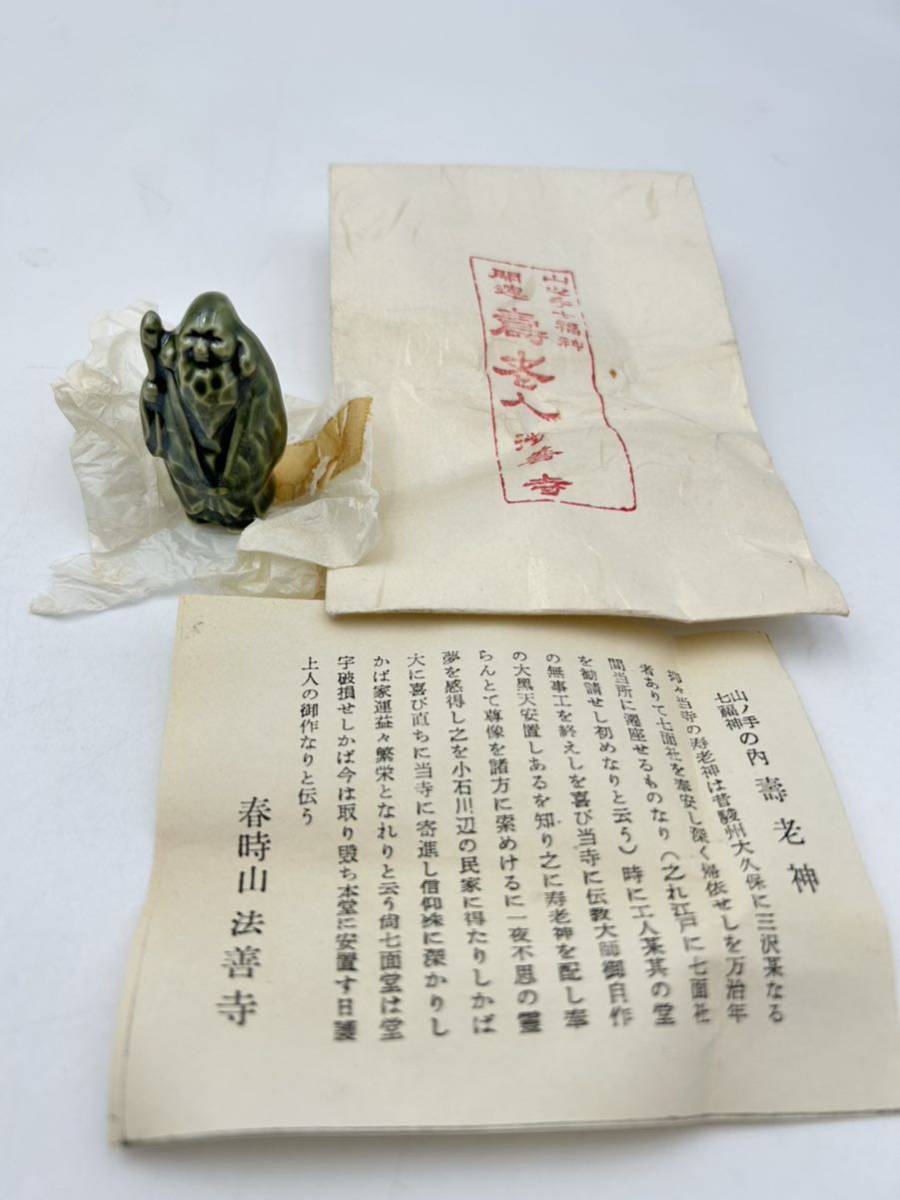 山之手七福神
開運
壽老人
山ノ手
七福神の内 壽老神
当寺の寿老神は昔駿州大久保に三沢某なる
者ありて七面社を奉安し深く帰依せしを万治年
間当所に遷座せるものなり(之れ江戸に七面社
を勧請せし初めなりと云う)時に工人某其の堂
の無事工を終えしを喜び当寺に伝教大師御自作
の大黑天安置しあるを知り之に寿老神を配し奉
らんとて尊像を諸方に索めけるに一夜不思の霊
夢を感得し之を小石川辺の民家に得たりしかば
大に喜び直ちに当寺に寄進し信仰殊に深かりし
かば家運益々繁栄となれりと云う尙七面堂は堂
字破損せしかば今は取り毀ち本堂に安置す日護
上人の御作なりと伝う
春時山 法善寺